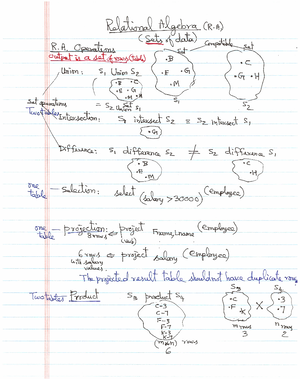 Relational Algebra (R.A)
(Sets of data)
R.A. Operations
Output is a set of rows (table)
Compatible
Set
Set
• B
• E • G
• M
S1
• C
• G • H
S2
Union: S1 Union S2
• B • C
• E • G
• M • H
= S2 Union S1
Set operations
Two tables
Intersection: S1 intersect S2 = S2 intersect S1
• G
Difference: S1 difference S2 ≠ S2 difference S1
• B
• E • M
• C
• H
one table
- Selection: select (employee)
(salary > 30000)
one table
- projection: project Fname, Lname (employee)
8 rows
6 rows project salary (employee)
with salary values.
The projected result table should not have duplicate rows
Two tables Product S3 product S4
C-3
C-7
F-3
F-7
K-3
K-7
(m*n) rows
6
S3
• C
• F
K
m rows
3
X
S4
• 3
• 7
n rows
2